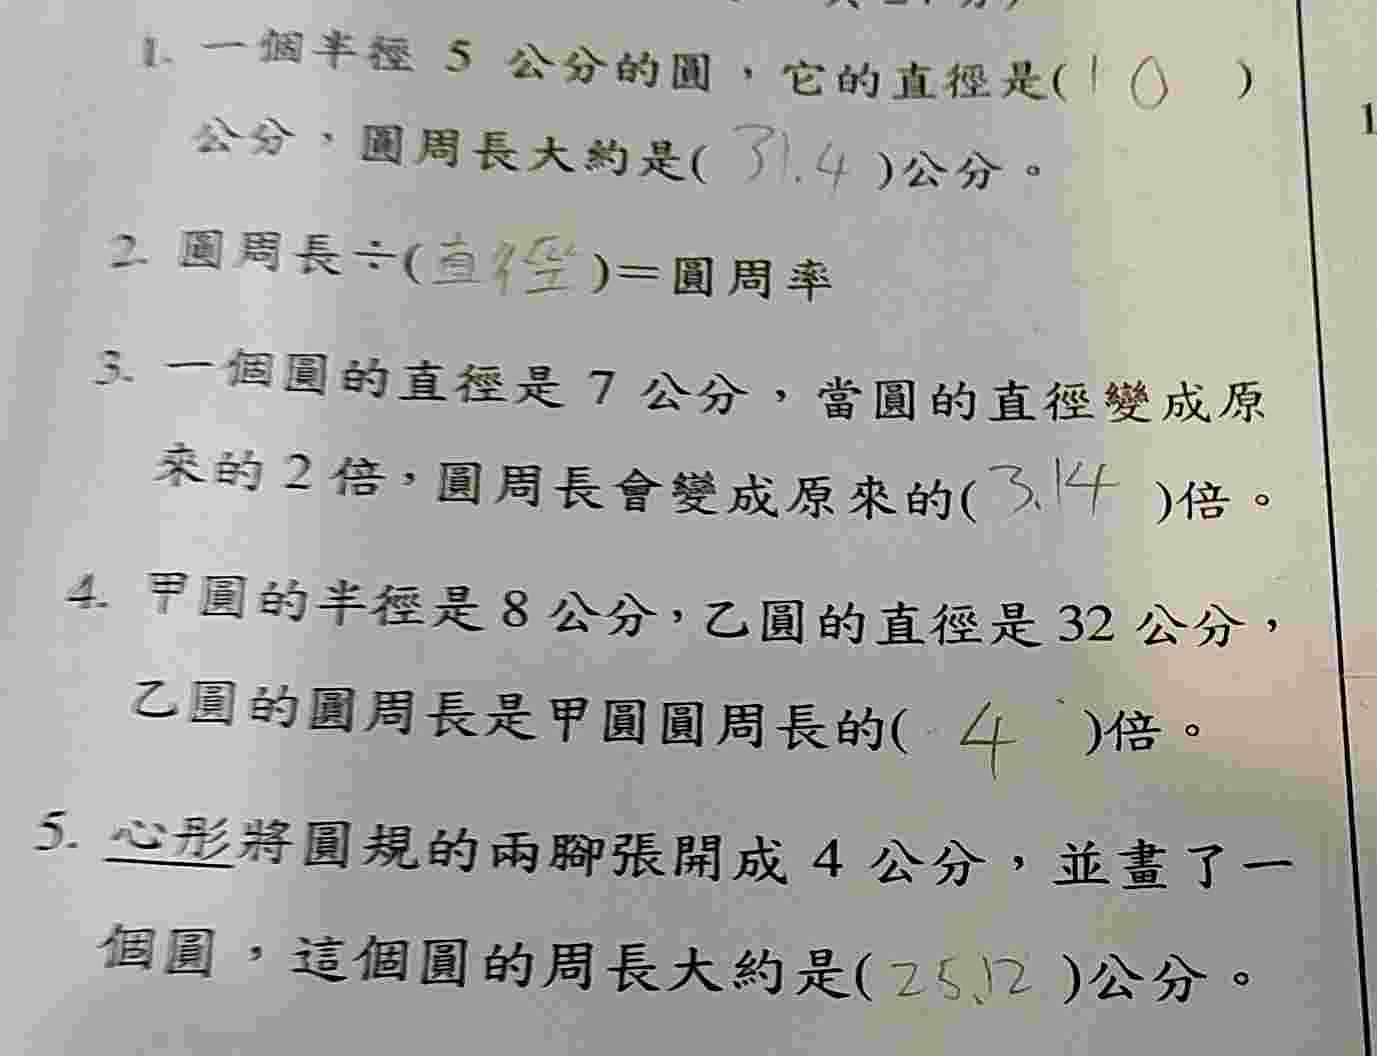 1. 一個半徑 5 公分的圓，它的直徑是(10)
公分，圓周長大約是(31.4)公分。
2. 圓周長÷(直徑)＝圓周率
3. 一個圓的直徑是 7 公分，當圓的直徑變成原
來的 2 倍，圓周長會變成原來的(3.14)倍。
4. 甲圓的半徑是 8 公分，乙圓的直徑是 32 公分，
乙圓的圓周長是甲圓圓周長的(4)倍。
5. 心彤將圓規的兩腳張開成 4 公分，並畫了一
個圓，這個圓的周長大約是(25.12)公分。
1